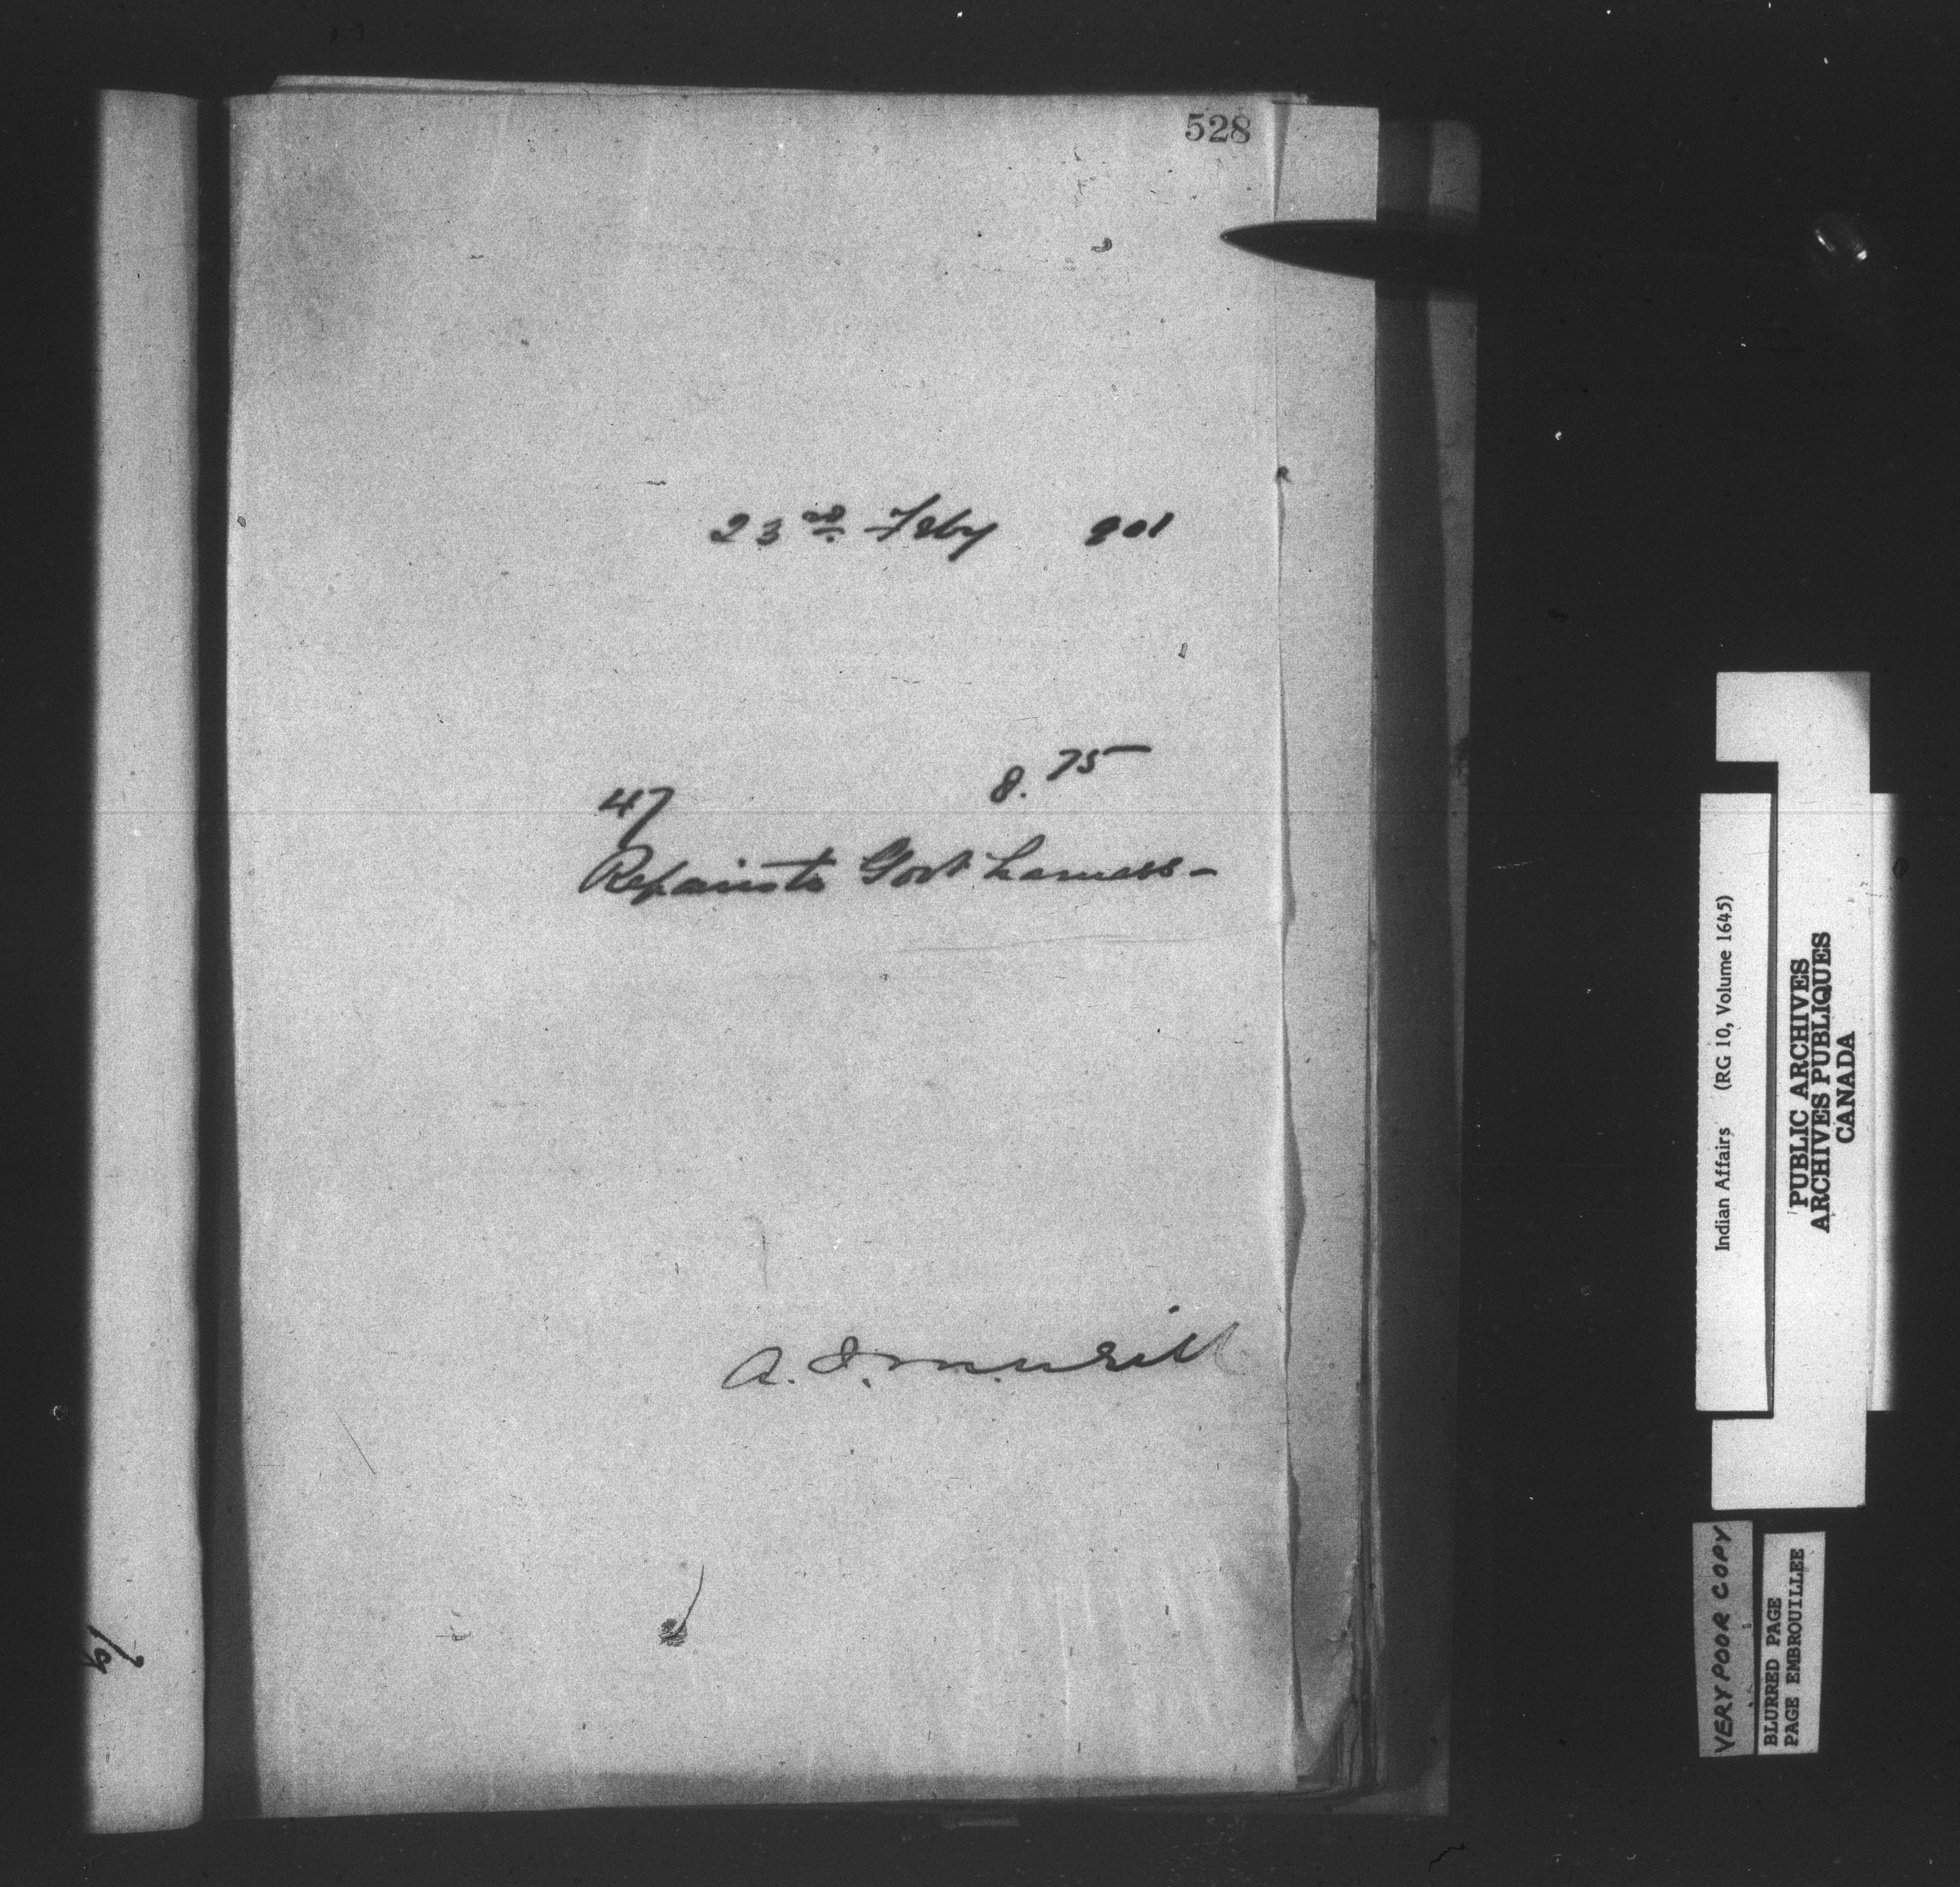 528
23rd Feby 901
47 8.75
Repairs to Govt harness -
Indian Affairs (RG 10, Volume 1645)
PUBLIC ARCHIVES
ARCHIVES PUBLIQUES
CANADA
VERY POOR COPY
BLURRED PAGE
PAGE EMBROUILLEE